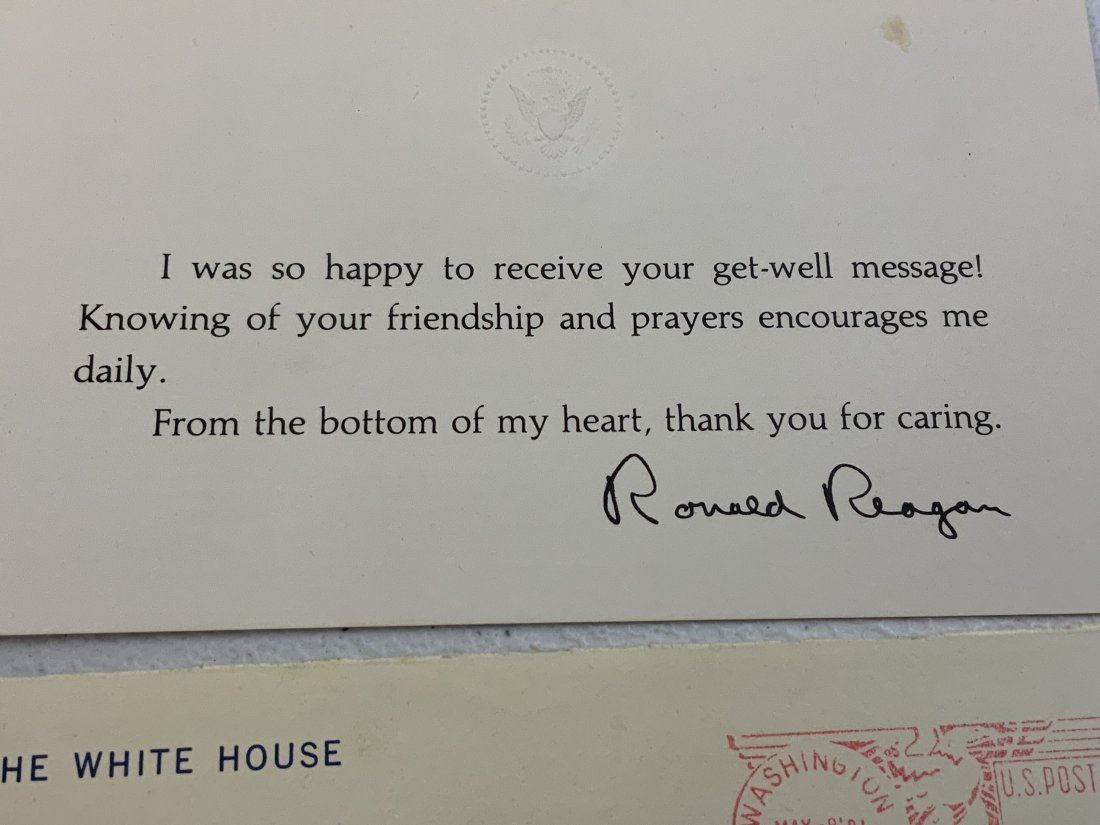 I was so happy to receive your get-well message!
Knowing of your friendship and prayers encourages me
daily.
From the bottom of my heart, thank you for caring.
Ronald Reagan
HE WHITE HOUSE
WASHINGTON
U.S.POST